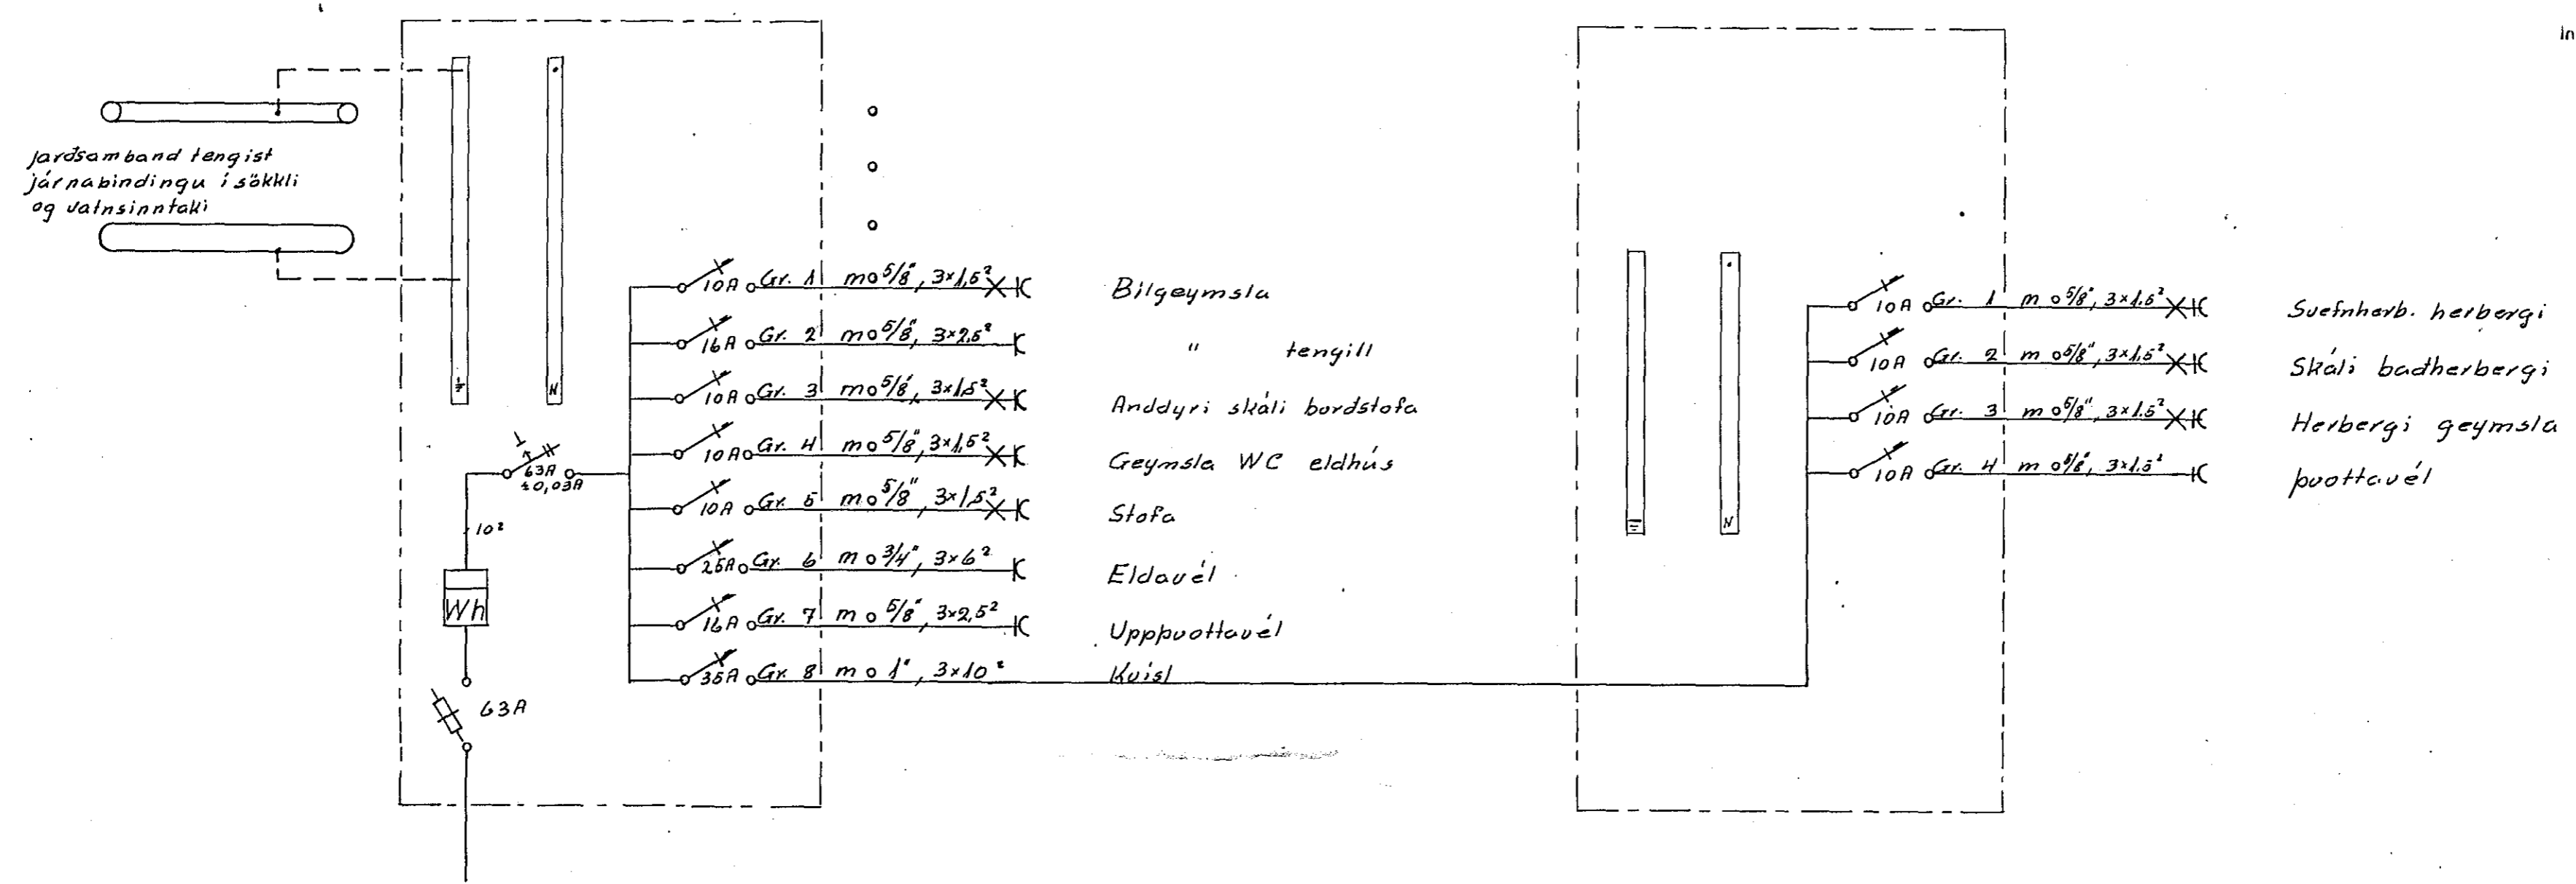 In
jarðsamband tengist
járnabindingu í sökkli
og vatnsinntaki
N
10A Gr. 1 m o 5/8", 3×1,5² Bilgeymsla
16A Gr. 2 m o 5/8", 3×2,5² " tengill
10A Gr. 3 m o 5/8", 3×1,5² Anddyri skáli bordstofa
10A Gr. 4 m o 5/8", 3×1,5² Geymsla WC eldhús
10A Gr. 5 m o 5/8", 3×1,5² Stofa
25A Gr. 6 m o 3/4", 3×6² Eldavél
16A Gr. 7 m o 5/8", 3×2,5² Uppþvottavél
35A Gr. 8 m o 1", 3×10² Kvísl
63A
±0,03A
10²
Wh
63A
N
10A Gr. 1 m o 5/8", 3×1,5² Svefnherb. herbergi
10A Gr. 2 m o 5/8", 3×1,5² Skáli badherbergi
10A Gr. 3 m o 5/8", 3×1.5² Herbergi geymsla
10A Gr. 4 m o 5/8", 3×1,5² þvottavél